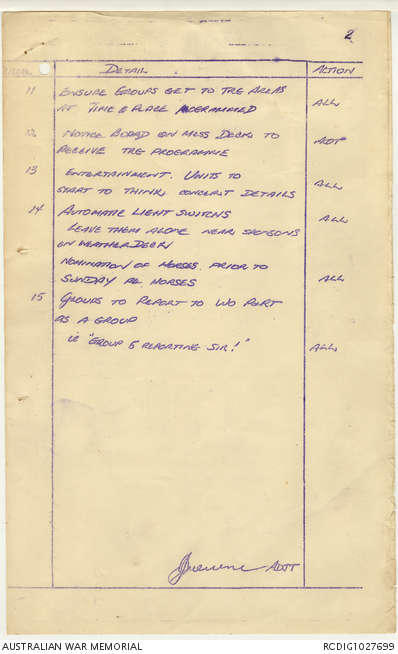 2
DETAIL ACTION
11 ENSURE GROUPS GET TO TRG AREAS
AT TIME & PLACE PROGRAMMED ALL
12 NOTICE BOARD ON MESS DECKS TO
RECEIVE TRG PROGRAMME ADJT
13 ENTERTAINMENT. UNITS TO
START TO THINK, CONCERT DETAILS ALL
14 AUTOMATIC LIGHT SWITCHS ALL
LEAVE THEM ALONE NEAR SPONSONS
ON WEATHER DECK
NOMINATION OF HORSES. PRIOR TO
SUNDAY AL. HORSES ALL
15 GROUPS TO REPORT TO WO PORT
AS A GROUP
ie "GROUP 5 REPORTING SIR!" ALL
ADJT
AUSTRALIAN WAR MEMORIAL RCDIG1027699